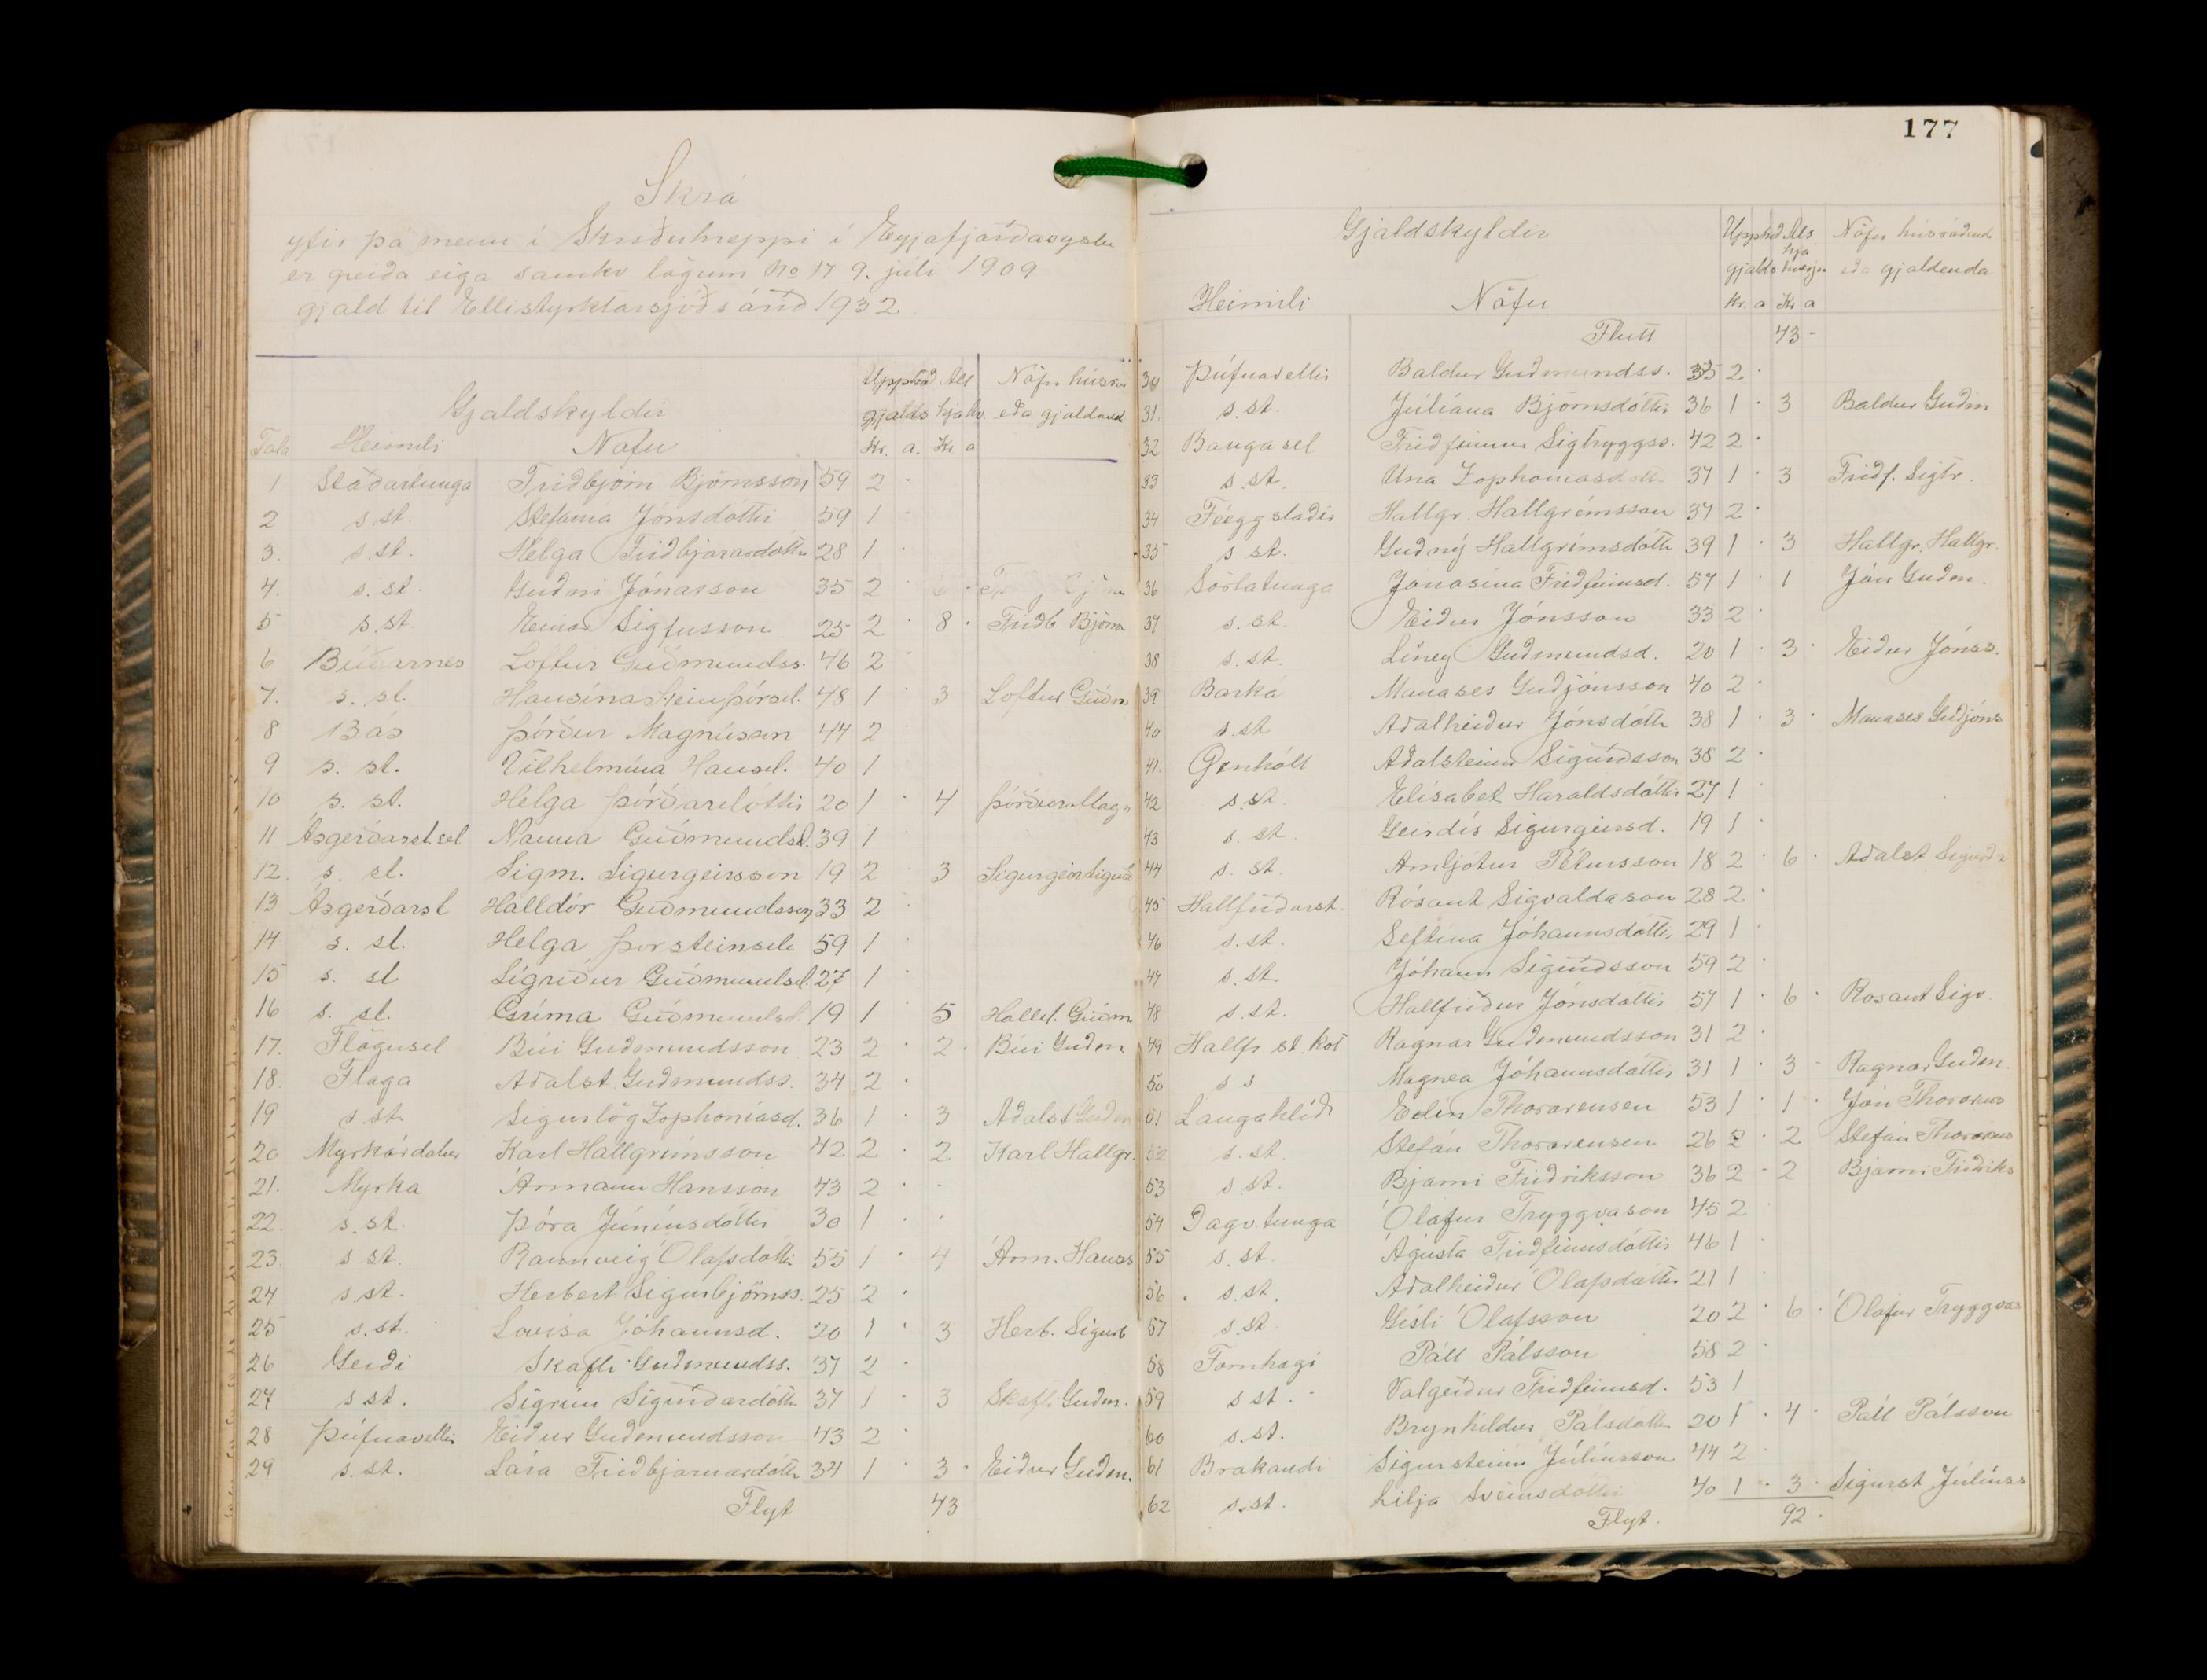 Skrá
yfir þá menn í Skriðuhreppi í Eyjafjarðarsýslu
er greiða eiga samkv lögum No 17 9. júlí 1909
gjald til Ellistyrktarsjóðs árið 1932
Upphæð All Nöfn húsrá
Gjaldskyldir gjalds hjá hv. eða gjaldand
Tala Heimili Nöfn Kr. a. Kr a
1 Staðartunga Friðbjörn Björnsson 59 2
2 s st. Stefanía Jónsdóttir 59 1
3. s. st. Helga Friðbjarnardóttir 28 1
4. s. st. Guðni Jónasson 35 2 6
5 s. st. Einar Sigfússon 25 2 8 Friðb Björns
6 Búðarnes Loftur Guðmundss. 46 2
7. s. st. Hansína Steinþórsd. 48 1 3 Loftur Guðm
8 Bás Þórður Magnússon 44 2
9 s. st. Vilhelmína Hansd. 40 1
10 s. st. Helga Þórðardóttir 20 1 4 Þórður Magn
11 Ásgerðarst.sel Nanna Guðmundsd. 39 1
12. s. st. Sigm. Sigurgeirsson 19 2 3 Sigurgeir Sigurð
13 Ásgerðarst Halldór Guðmundsson 33 2
14 s. st. Helga Þorsteinsd. 59 1
15 s. st Sigríður Guðmundsd. 27 1
16 s. st. Gríma Guðmundsd. 19 1 5 Halld. Guðm
17. Flögusel Búi Guðmundsson 23 2 2 Búi Guðm
18. Flaga Aðalst. Guðmundss. 34 2
19 s st Sigurlög Zophoníasd. 36 1 3 Aðalst Guðm
20 Myrkárdalur Karl Hallgrímsson 42 2 2 Karl Hallgr.
21. Myrká Ármann Hansson 43 2
22. s. st. Þóra Júníusdóttir 30 1
23. s st. Rannveig Ólafsdóttir 55 1 4 Árm. Hanss
24 s st. Herbert Sigurbjörnss. 25 2
25 s. st. Lovísa Jóhannsd. 20 1 3 Herb. Sigurb
26 Gerði Skafti Guðmundss. 37 2
27 s st. Sigrún Sigurðardóttir 37 1 3 Skafti Guðm.
28 Þúfnavellir Eiður Guðmundsson 43 2
29 s. st. Lára Friðbjarnardóttir 34 1 3 Eiður Guðm.
Flyt 43
177
Gjaldskyldir Upphæð Als Nöfn húsráðend
hjá
gjalds húsráð eða gjaldenda
Heimili Nöfn Kr. a Kr a
Flutt 43 -
30 Þúfnavellir Baldur Guðmundss. 35 2
31. s. st. Júlíana Björnsdóttir 36 1 3 Baldur Guðm
32 Baugasel Friðfinnur Sigtryggss. 42 2
33 s. st. Una Zophoníasdótt 37 1 3 Friðf. Sigtr.
34 Féeggstaðir Hallgr. Hallgrímsson 37 2
35 s st. Guðný Hallgrímsdóttir 39 1 3 Hallgr. Hallgr.
36 Sörlatunga Jónasína Friðfinnsd. 57 1 1 Jón Guðm.
37 s. st. Eiður Jónsson 33 2
38 s. st. Líney Guðmundsd. 20 1 3 Eiður Jónss.
39 Barká Manases Guðjónsson 40 2
40 s. st Aðalheiður Jónsdóttir 38 1 3 Manases Guðjóns
41. Ginhóll Aðalsteinn Sigurðsson 38 2
42 s. st. Elísabet Haraldsdóttir 27 1
43 s. st. Geirdís Sigurgeirsd. 19 1
44 s. st. Arnljótur Pétursson 18 2 6 Aðalst Sigurðs
45 Hallfríðarst. Rósant Sigvaldason 28 2
46 s. st. Septína Jóhannsdóttir 29 1
47 s. st Jóhann Sigurðsson 59 2
48 s. st. Hallfríður Jónsdóttir 57 1 6 Rosant Sigv.
49 Hallfr. st. kot Ragnar Guðmundsson 31 2
50 s s Magnea Jóhannsdóttir 31 1 3 Ragnar Guðm.
51 Laugahlíð Elín Thorarensen 53 1 1 Jón Thorarens
52 s. st. Stefán Thorarensen 26 2 2 Stefán Thorarens
53 s st. Bjarni Friðriksson 36 2 2 Bjarni Friðriks
54 Dagv.tunga Ólafur Tryggvason 45 2
55 s. st. Ágústa Friðfinnsdóttir 46 1
56 s. st. Aðalheiður Ólafsdóttir 21 1
57 s. st. Gísli Ólafsson 20 2 6 Ólafur Tryggvas
58 Fornhagi Páll Pálsson 58 2
59 s st. Valgerður Friðfinnsd. 53 1
60 s. st. Brynhildur Pálsdóttir 20 1 4 Páll Pálsson
61 Brakandi Sigursteinn Júlíusson 44 2
62 s. st. Lilja Sveinsdóttir 40 1 3 Sigurst Júlíuss
Flyt. 92